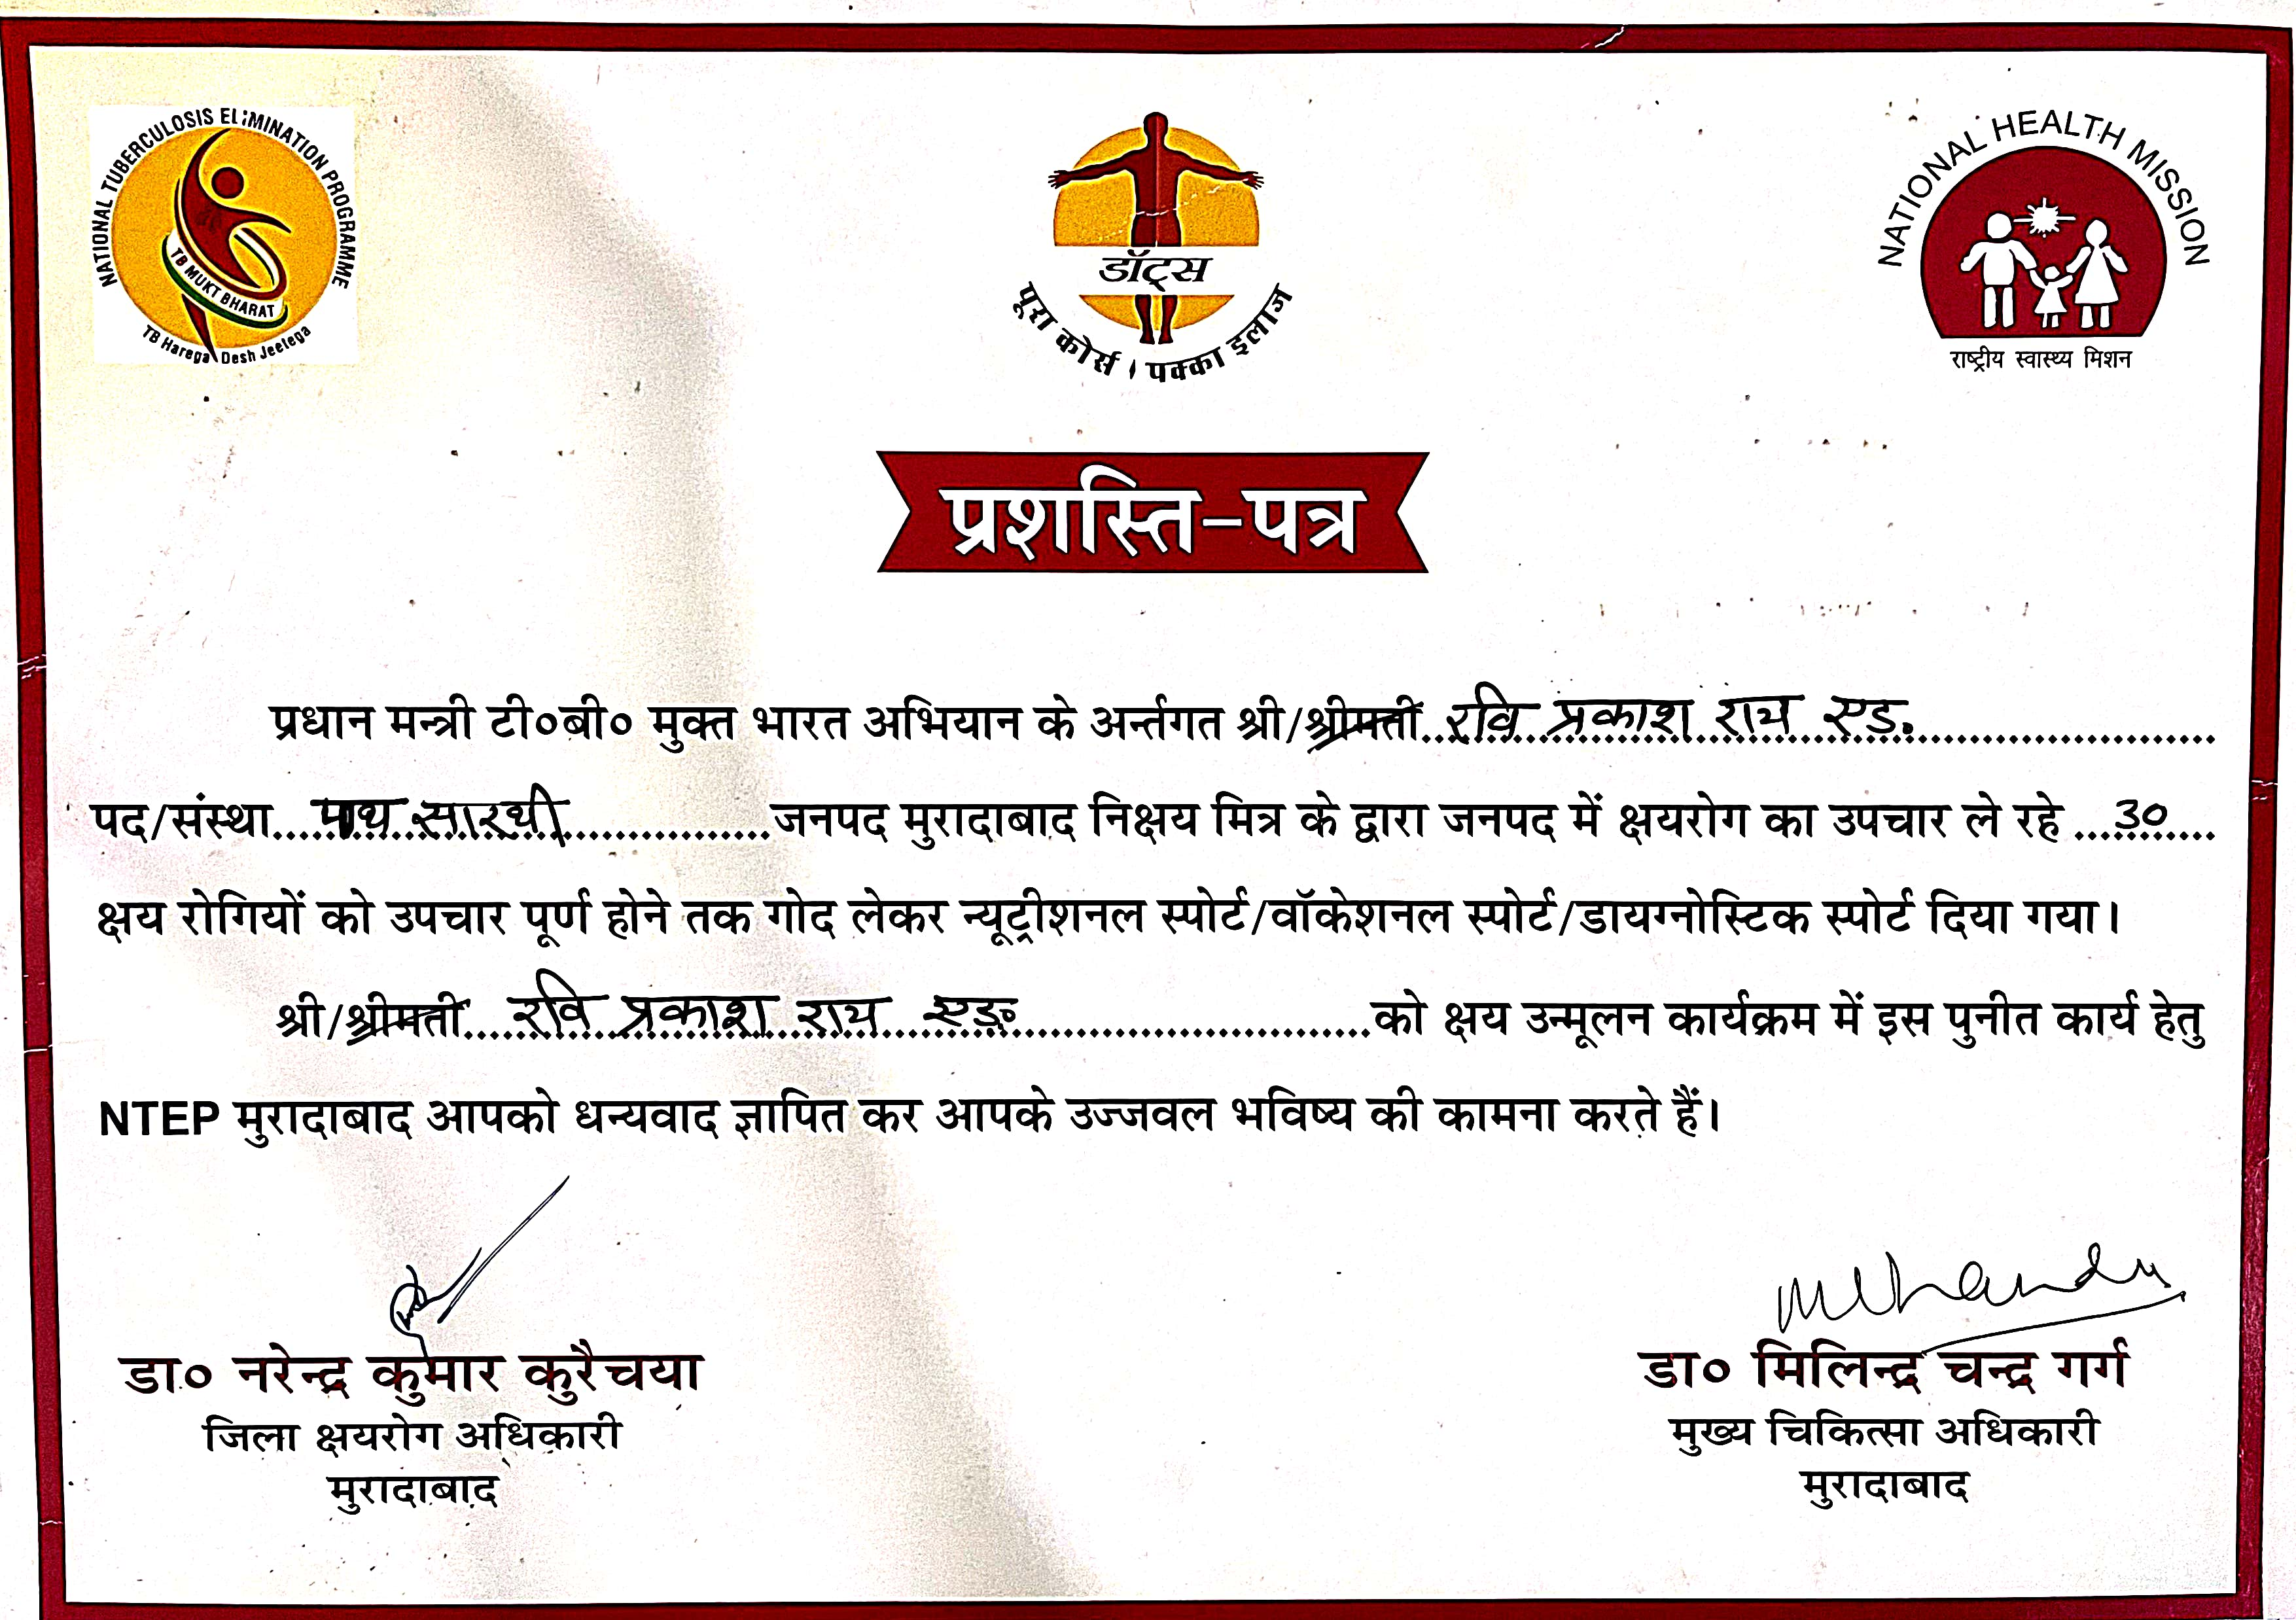 NATIONAL TUBERCULOSIS ELIMINATION PROGRAMME
TB MUKT BHARAT
TB Harega Desh Jeetega
डॉट्स
पूरा कोर्स । पक्का इलाज
NATIONAL HEALTH MISSION
राष्ट्रीय स्वास्थ्य मिशन
प्रशस्ति-पत्र
प्रधान मन्त्री टी०बी० मुक्त भारत अभियान के अर्न्तगत श्री/श्रीमती रवि प्रकाश राय एड.
पद/संस्था पाथ सारथी जनपद मुरादाबाद निक्षय मित्र के द्वारा जनपद में क्षयरोग का उपचार ले रहे 30
क्षय रोगियों को उपचार पूर्ण होने तक गोद लेकर न्यूट्रीशनल स्पोर्ट/वॉकेशनल स्पोर्ट/डायग्नोस्टिक स्पोर्ट दिया गया।
श्री/श्रीमती रवि प्रकाश राय एड० को क्षय उन्मूलन कार्यक्रम में इस पुनीत कार्य हेतु
NTEP मुरादाबाद आपको धन्यवाद ज्ञापित कर आपके उज्जवल भविष्य की कामना करते हैं।
डा० नरेन्द्र कुमार कुरैचया
जिला क्षयरोग अधिकारी
मुरादाबाद
डा० मिलिन्द्र चन्द्र गर्ग
मुख्य चिकित्सा अधिकारी
मुरादाबाद